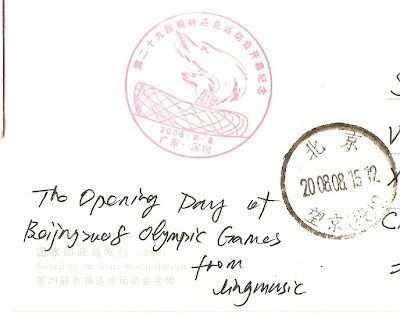 第二十九届奥林匹克运动会开幕纪念
2008.8.8
广东·深圳
北京
2008.08.15.12
望京
The Opening Day at
Beijing2008 Olympic Games
from
lingmusic
国家邮政局发行
Issued by the State Postal Bureau
第29届奥林匹克运动会会徽